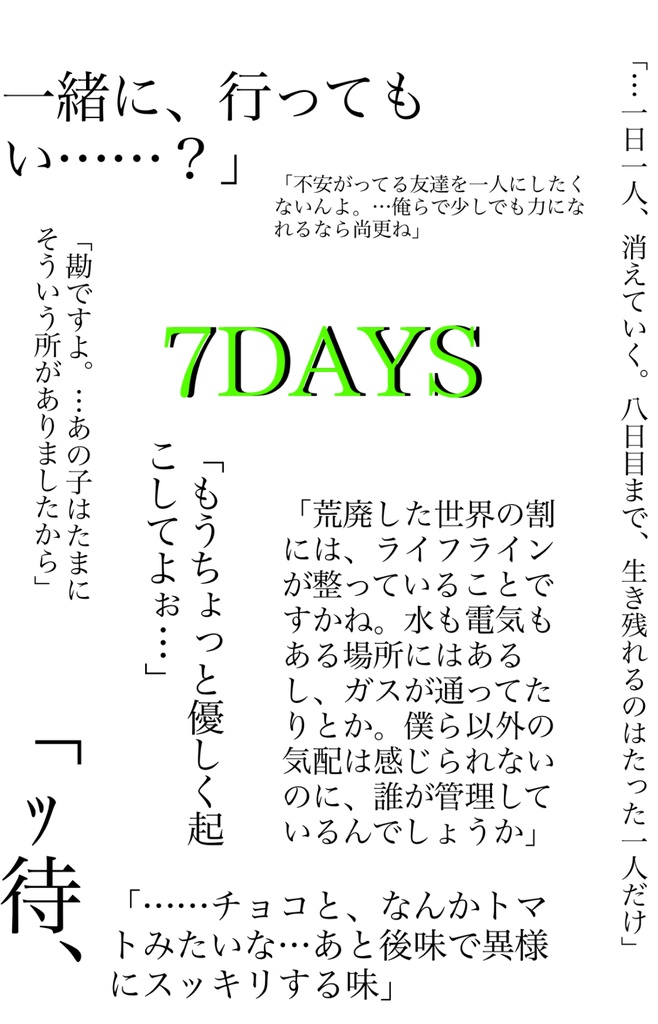 「…一日一人、消えていく。八日目まで、生き残れるのはたった一人だけ」
一緒に、行っても
い……？」
「不安がってる友達を一人にしたく
ないんよ。…俺らで少しでも力にな
れるなら尚更ね」
「勘ですよ。…あの子はたまに
そういう所がありましたから」
7DAYS
「もうちょっと優しく起
こしてよぉ…」
「荒廃した世界の割
には、ライフライン
が整っていることで
すかね。水も電気も
ある場所にはある
し、ガスが通ってた
りとか。僕ら以外の
気配は感じられない
のに、誰が管理して
いるんでしょうか」
「ッ待、
「……チョコと、なんかトマ
トみたいな…あと後味で異様
にスッキリする味」